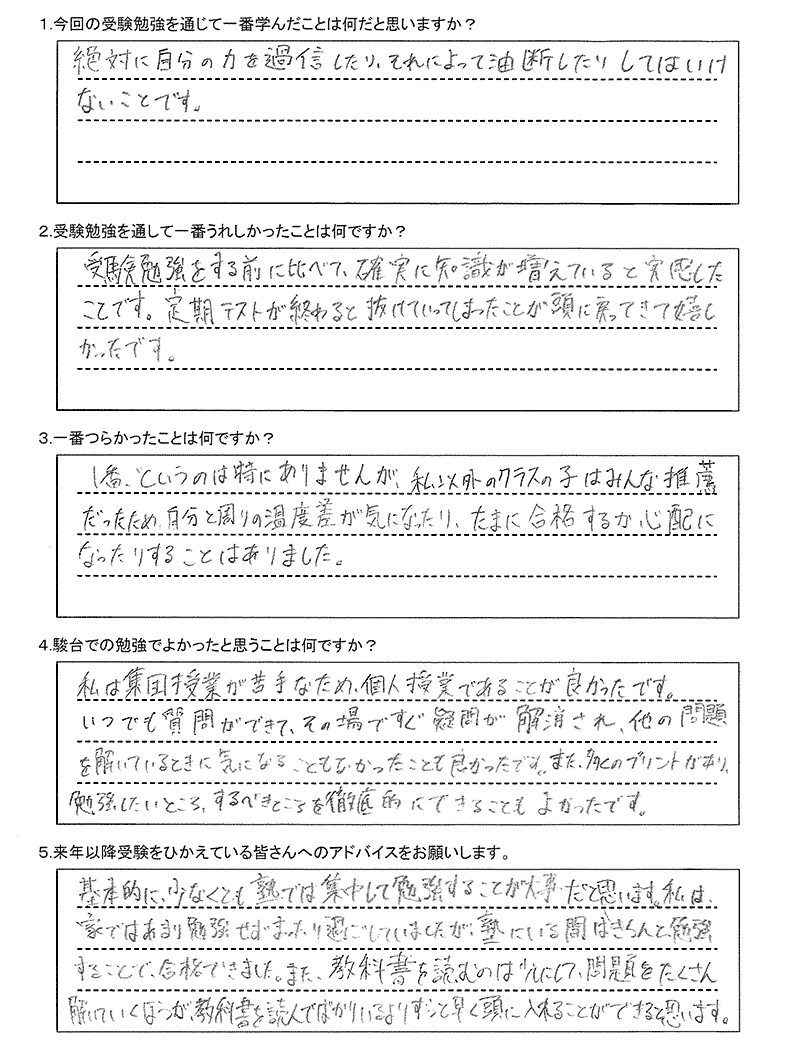 1.今回の受験勉強を通じて一番学んだことは何だと思いますか？
絶対に自分の力を過信したり、それによって油断したりしてはいけ
ないことです。
2.受験勉強を通して一番うれしかったことは何ですか？
受験勉強をする前に比べて、確実に知識が増えていると実感した
ことです。定期テストが終わると抜けていってしまったことが頭に戻ってきて嬉し
かったです。
3.一番つらかったことは何ですか？
1番、というのは特にありませんが、私以外のクラスの子はみんな推薦
だったため、自分と周りの温度差が気になったり、たまに合格するか心配に
なったりすることはありました。
4.駿台での勉強でよかったと思うことは何ですか？
私は集団授業が苦手なため、個人授業であることが良かったです。
いつでも質問ができて、その場ですぐ疑問が解消され、他の問題
を解いているときに気になることもなかったことも良かったです。また、多くのプリントがあり、
勉強したいところ、するべきところを徹底的にできることもよかったです。
5.来年以降受験をひかえている皆さんへのアドバイスをお願いします。
基本的に、少なくとも塾では集中して勉強することが大事だと思います。私は、
家ではあまり勉強せずまったり過ごしていましたが、塾にいる間はきちんと勉強
することで、合格できました。また、教科書を読むのは少しにして、問題をたくさん
解いていくほうが、教科書を読んでばかりいるよりずっと早く頭に入れることができると思います。